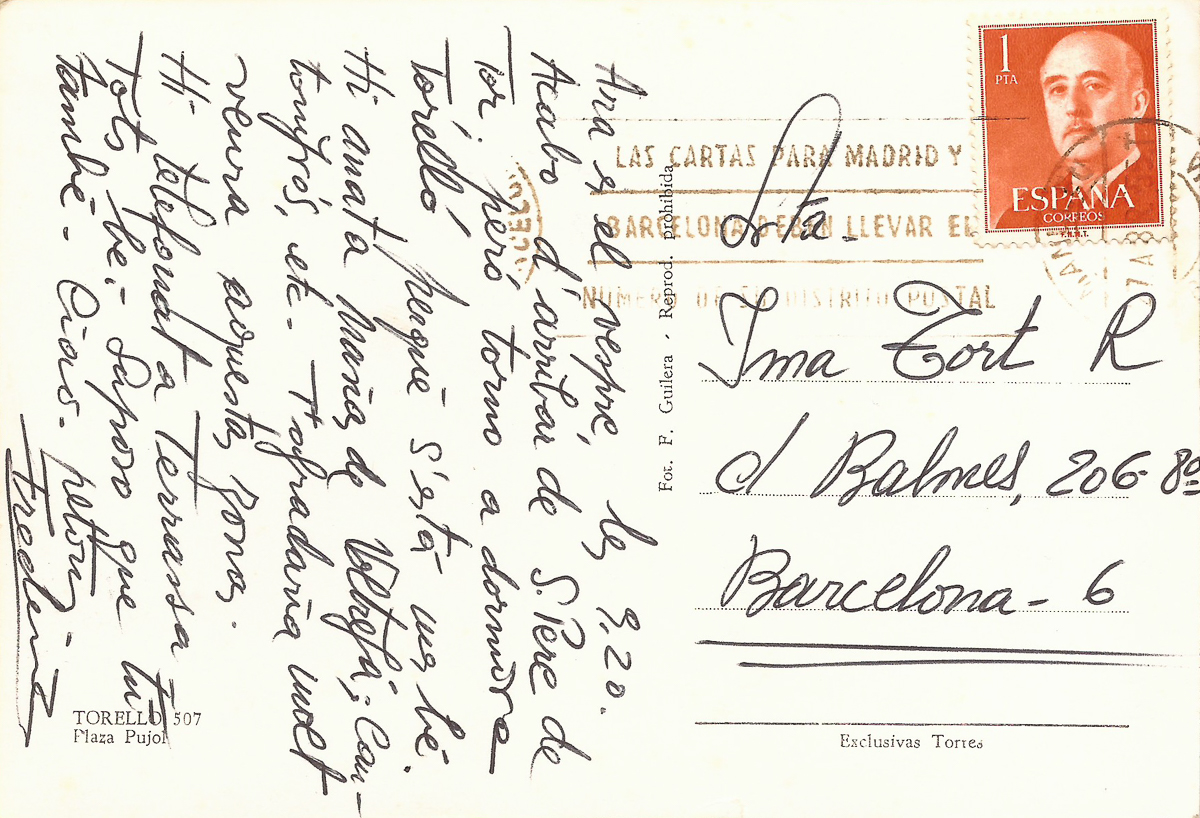 Ara es el vespre, les 9,20.
Acabo d'arribar de S. Pere de
Tor. però torno a dormir a
Torelló perquè s'està mes bé.
Hi anat a Manàs de Voltregà; Com-
tonyròs, etc. T'agradaria molt
veura aquesta zona.
Hi telefonat a Terrassa
Tots be; Suposo que tu
també. Ciao. petons
Frederic
TORELLO 507
Plaza Pujol
Fot. F. Guilera - Reprod. prohibida
LAS CARTAS PARA MADRID Y
BARCELONA DEBEN LLEVAR EL
NUMERO DE SU DISTRITO POSTAL
1
PTA
ESPAÑA
CORREOS
Srta.
Ima Tort R
c/ Balmes, 206-8º
Barcelona - 6
Exclusivas Torres